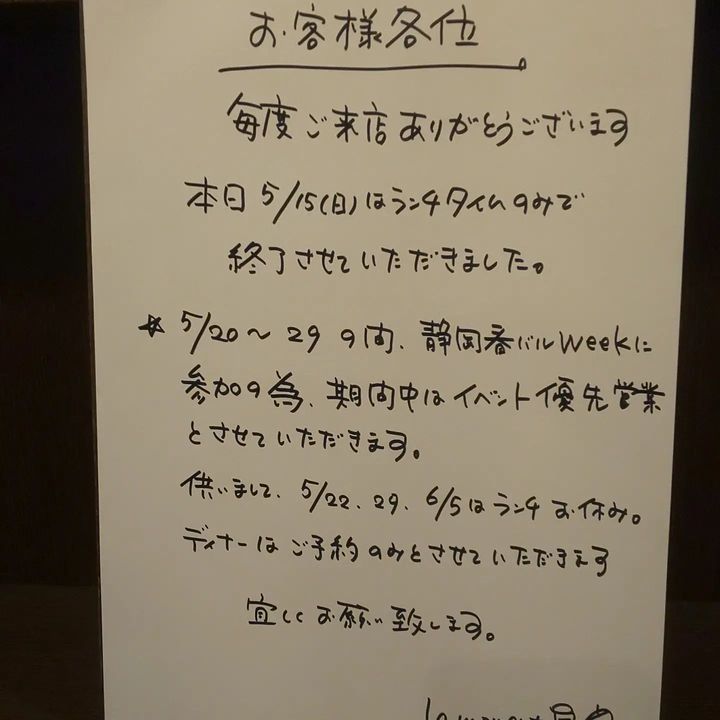 お客様各位
毎度ご来店ありがとうございます
本日 5/15(日)はランチタイムのみで
終了させていただきました。
☆ 5/20〜29の間、静岡春バルweekに
参加の為、期間中はイベント優先営業
とさせていただきます。
供いまして、5/22、29、6/5はランチお休み。
ディナーはご予約のみとさせていただきます
宜しくお願い致します。